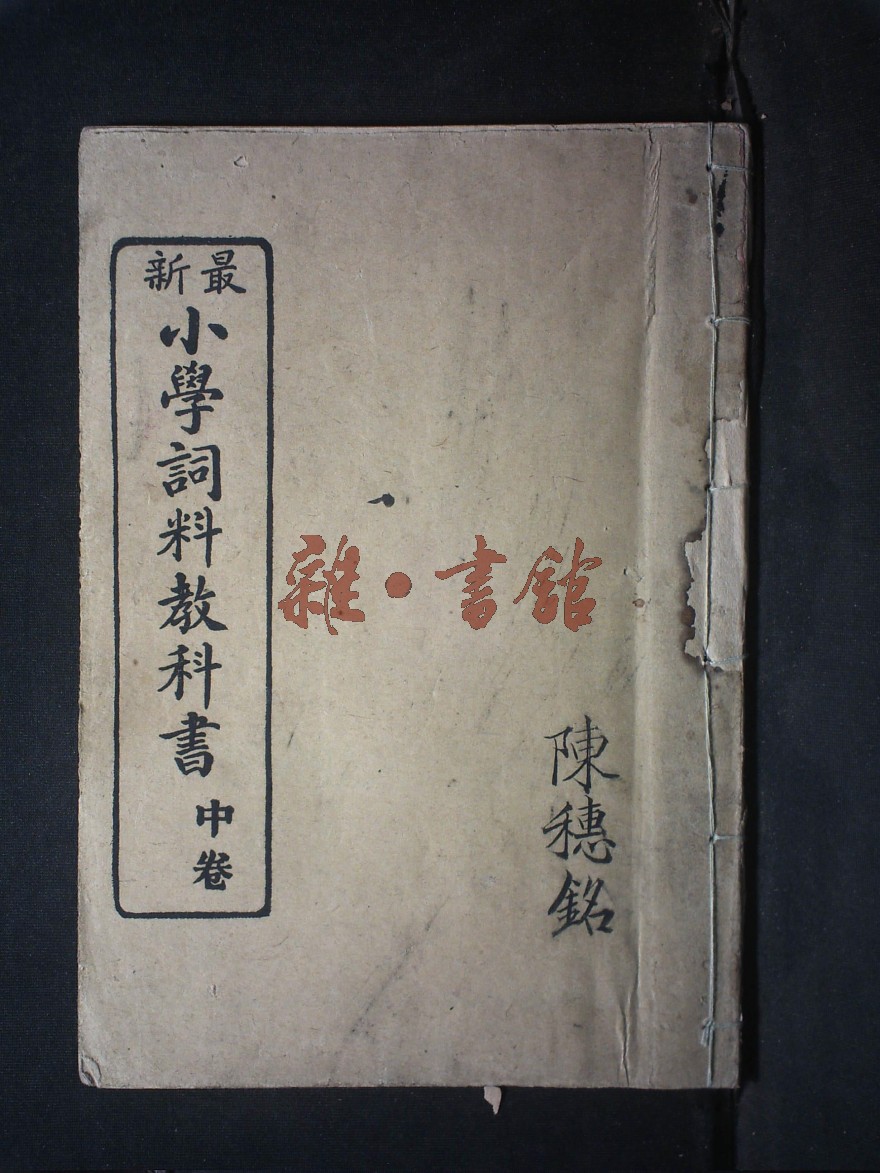 最新
小學詞料教科書
中卷
雜·書館
陳穗銘